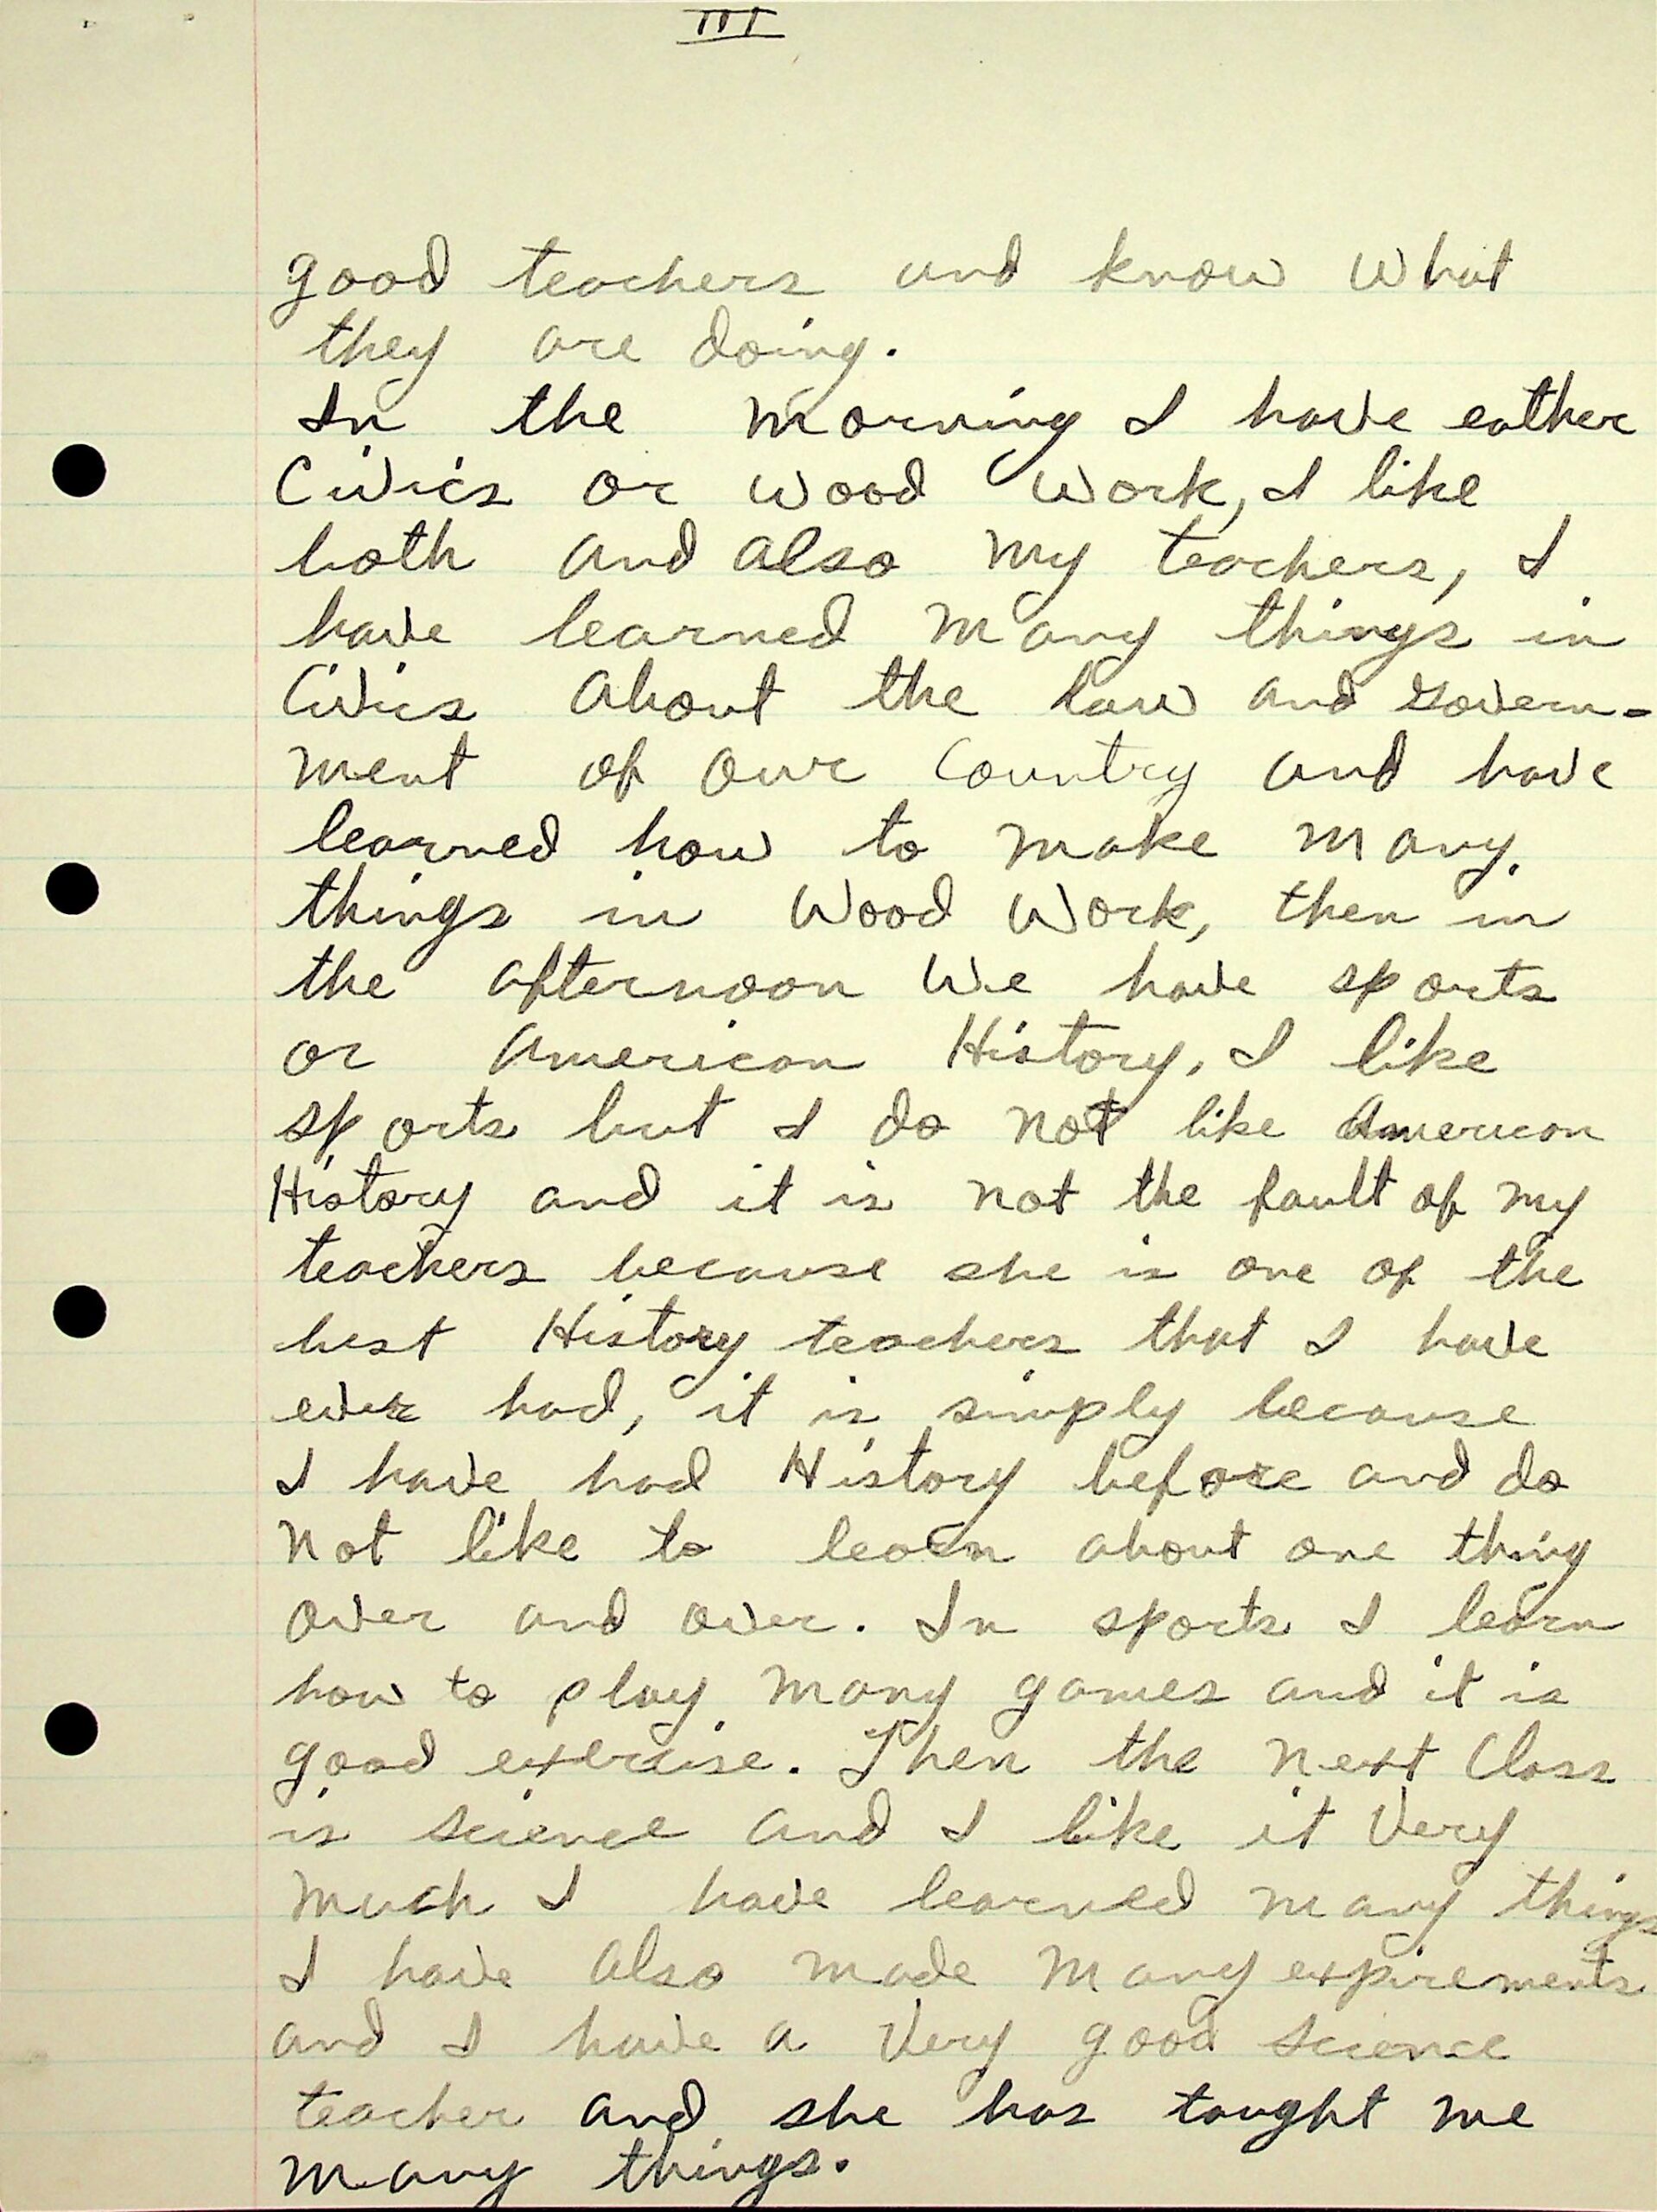 III
good teachers and know what
they are doing.
In the morning I have eather
Civics or wood work, I like
both and also my teachers, I
have learned many things in
Civics about the law and govern-
ment of our Country and have
learned how to make many
things in Wood Work, then in
the afternoon We have sports
or American History, I like
sports but I do not like American
History and it is not the fault of my
teachers because she is one of the
best History teachers that I have
ever had, it is simply because
I have had History before and do
not like to learn about one thing
over and over. In sports I learn
how to play many games and it is
good exercise. Then the next Class
is science and I like it Very
much I have learned many things
I have also made many expirements
and I have a Very good science
teacher and she has taught me
many things.